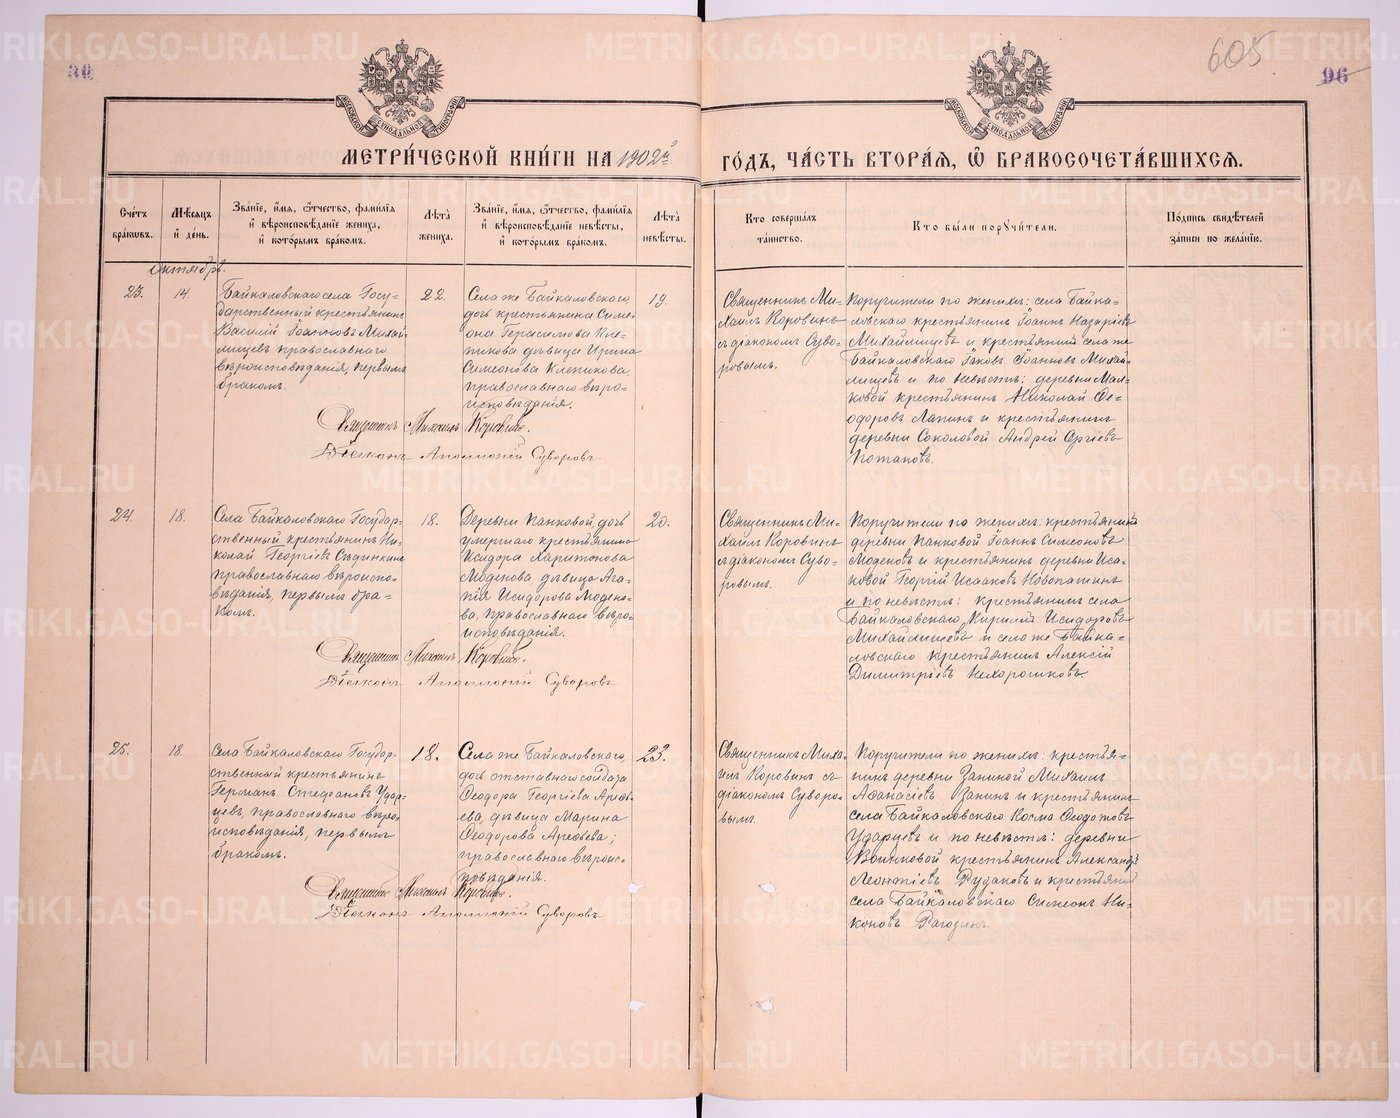 605
96
МЕТРИ́ЧЕСКОЙ КНИ́ГИ НА 1902й
ГО́ДЪ, ЧА́СТЬ ВТОРА́Я, Ѡ БРАКОСОЧЕТА́ВШИХСЯ.
Сче́тъ бра́ковъ.
Мѣ́сяцъ и де́нь.
Зва́нїе, и́мя, ѻ́тчество, фами́лїя
и вѣроисповѣ́данїе жениха́,
и кото́рымъ бра́комъ.
Лѣ́та жениха́.
Зва́нїе, и́мя, ѻ́тчество, фами́лїя
и вѣроисповѣ́данїе невѣ́сты,
и кото́рымъ бра́комъ.
Лѣ́та невѣ́сты.
Кто соверша́лъ
та́инство.
Кто бы́ли поручи́тели.
По́дпись свидѣ́телей
за́писи по жела́нїю.
Октябрь.
23.
14.
Байкаловскаго села Госу-
дарственный крестьянинъ
Василій Іоанновъ Михай-
лищевъ православнаго
вѣроисповѣданія, первымъ
бракомъ.
22.
Села же Байкаловскаго
дочь крестьянина Симе-
она Герасимова Кле-
пикова дѣвица Ирина
Симеонова Клепикова
православнаго вѣро-
исповѣданія.
19.
Священникъ Ми-
хаилъ Коровинъ
съ діакономъ Суво-
ровымъ.
Поручители по женихѣ: села Байка-
ловскаго крестьянинъ Іоаннъ Назаріевъ
Михайлищевъ и крестьянинъ села же
Байкаловскаго Іаковъ Іоанновъ Михай-
лищевъ и по невѣстѣ: деревни Мал-
ковой крестьянинъ Николай Ѳе-
одоровъ Лапинъ и крестьянинъ
деревни Соколовой Андрей Сергіевъ
Потаповъ.
Священникъ Михаилъ Коровинъ.
Діаконъ Аполлоній Суворовъ
24.
18.
Села Байкаловскаго Государ-
ственный крестьянинъ Ни-
колай Георгіевъ
православнаго вѣроиспо-
вѣданія, первымъ бра-
комъ.
18.
Деревни Панковой, дочь
умершаго крестьянина
Исидора Харитонова
Моденова дѣвица Ага-
пія Исидорова Модено-
ва, православнаго вѣро-
исповѣданія.
20.
Священникъ Ми-
хаилъ Коровинъ
съ діакономъ Суво-
ровымъ.
Поручители по женихѣ: крестьянинъ
деревни Панковой Іоаннъ Симеоновъ
Моденовъ и крестьянинъ деревни Иса-
ковой Георгій Исааковъ Новопашинъ
и по невѣстѣ: крестьянинъ села
Байкаловскаго Кириллъ Исидоровъ
Михайлищевъ и села же Байка-
ловскаго крестьянинъ Алексій
Димитріевъ Нехорошковъ.
Священникъ Михаилъ Коровинъ.
Діаконъ Аполлоній Суворовъ
25.
18.
Села Байкаловскаго Государ-
ственный крестьянинъ
Германъ Стефановъ Удар-
цевъ, православнаго вѣро-
исповѣданія, первымъ
бракомъ.
18.
Села же Байкаловскаго,
дочь отставнаго солдата
Ѳеодора Георгіева Арефь-
ева, дѣвица Марина
Ѳеодорова Арефьева;
православнаго вѣроис-
повѣданія.
23.
Священникъ Миха-
илъ Коровинъ съ
діакономъ Суворо-
вымъ.
Поручители по женихѣ: крестья-
нинъ деревни Заниной Михаилъ
Аѳанасіевъ Занинъ и крестьянинъ
села Байкаловскаго Косма Ѳедотовъ
Ударцевъ и по невѣстѣ: деревни
Воинковой крестьянинъ Александръ
Леонтіевъ Рудаковъ и крестьянинъ
села Байкаловскаго Симеонъ Ни-
коновъ Рагозинъ.
Священникъ Михаилъ Коровинъ.
Діаконъ Аполлоній Суворовъ